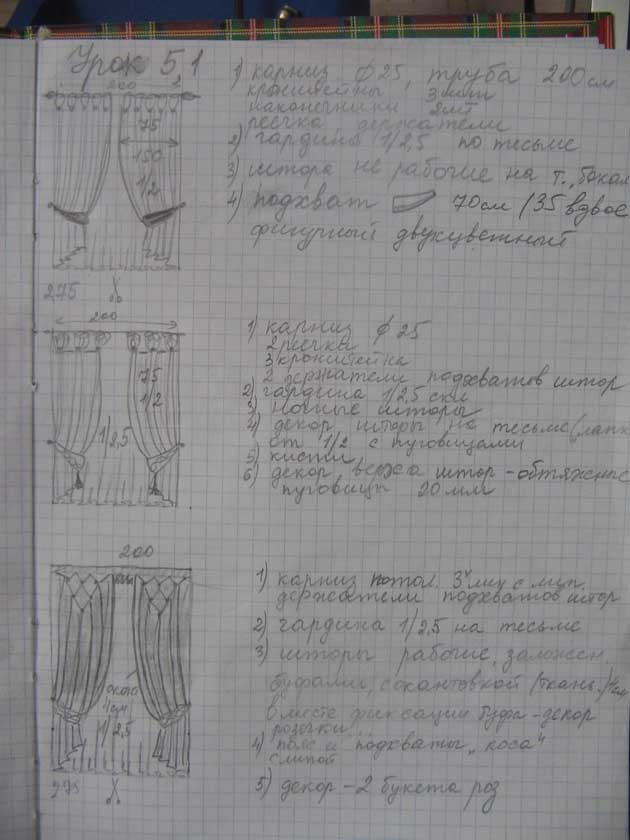 Урок 51
200
75
150
1/2
275
1) карниз ф 25, труба 200 см
кронштейны, 3 шт
наконечники 2 шт
рейка держатели
2) гардина 1/2,5 по тесьме
3) штора не рабочие на т. „бокал
4) подхват 70 см /35 вдвое
фигурный двухцветный
200
75
1/2
1/2,5
1) карниз ф 25
2 рейки
3 кронштейна
2 держатели подхватов штор
2) гардина 1/2,5
3) ночные шторы
4) декор шторы на тесьме
от 1/2 с пуговицами
5) кисти
6) декор верха штор - обтяжные
пуговицы 20 мм
200
1/2,5
275
1) карниз потол. 3х
держатели подхватов штор
2) гардина 1/2,5 на тесьме
3) шторы рабочие, заложен
буфами, с окантовкой /ткань/
вместе фиксации буфа - декор
розочки
4) пояс и подхваты „коса"
5) декор - 2 букета роз